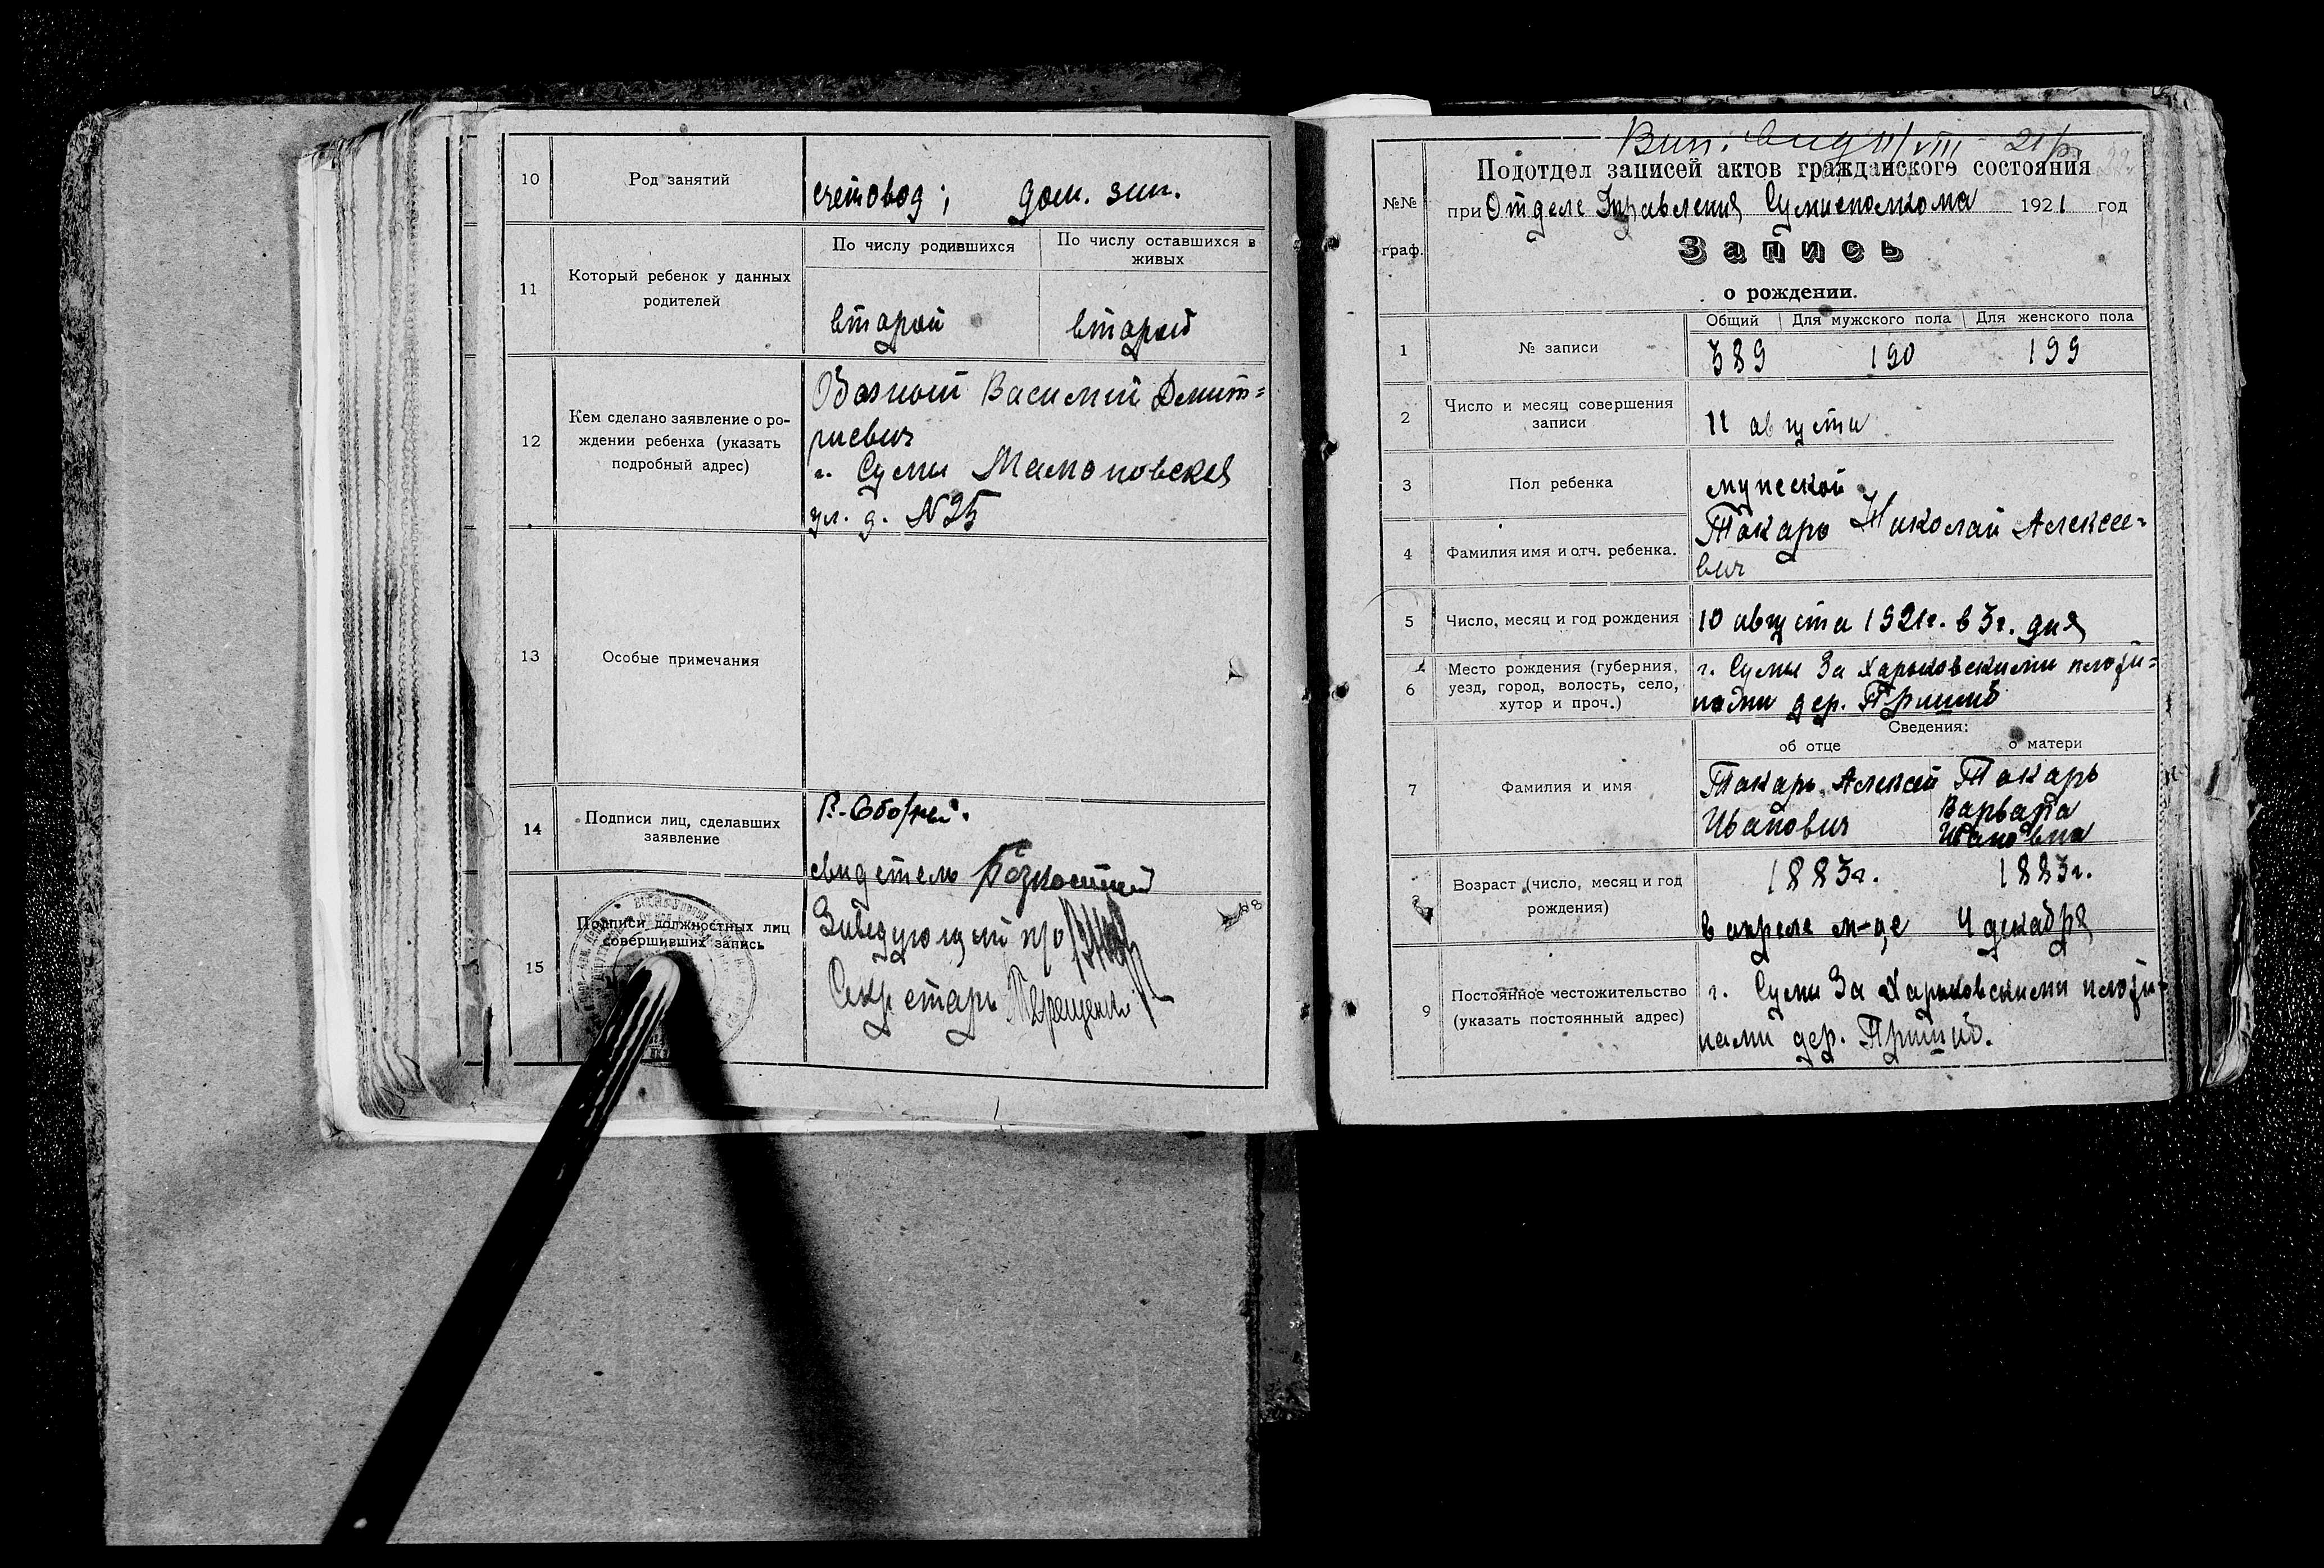 10
Род занятий
счетовод; дом. зан.
11
Который ребенок у данных
родителей
По числу родившихся
По числу оставшихся в
живых
второй
второй
12
Кем сделано заявление о ро-
ждении ребенка (указать
подробный адрес)
Василий Дмит=
риевич
г. Сумы Мамоновская
ул. д. №25
13
Особые примечания
14
Подписи лиц, сделавших
заявление
свидетель
15
Подписи должностных лиц
совершивших запись
Заведующий п/о
Секретарь Терещенко
Вип. 11/VIII - 21 р.
№№
граф.
Подотдел записей актов гражданского состояния
при Отделе Управления Сумисполкома 1921 год
Запись
о рождении.
1
№ записи
Общий
Для мужского пола
Для женского пола
389
190
199
2
Число и месяц совершения
записи
11 августа
3
Пол ребенка
мужеской
4
Фамилия имя и отч. ребенка.
Токарь Николай Алексее=
вич
5
Число, месяц и год рождения
10 августа 1921г. в 3г. дня
6
Место рождения (губерния,
уезд, город, волость, село,
хутор и проч.)
г. Сумы За Харьковскими
дер. Пришиб
Сведения:
об отце
о матери
7
Фамилия и имя
Токарь Алексей
Иванович
Токарь
Варвара
Ивановна
8
Возраст (число, месяц и год
рождения)
1883г.
в апреле м-це
1883г.
4 декабря
9
Постоянное местожительство
(указать постоянный адрес)
г. Сумы За Харьковскими
дер. Пришиб.